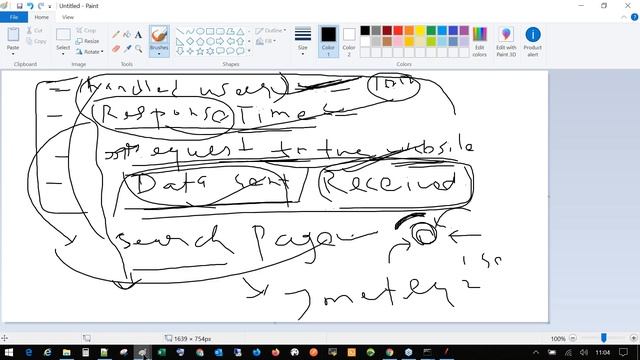 Untitled - Paint
File Home View
Paste Cut Copy Select Crop Resize Rotate Brushes Outline Fill Size Color 1 Color 2 Edit colors Edit with Paint 3D Product alert
Clipboard Image Tools Shapes Colors
handled users
Response Time
Request to the website
Data sent / Received
Search Page
1639 × 754px 100%
11:04